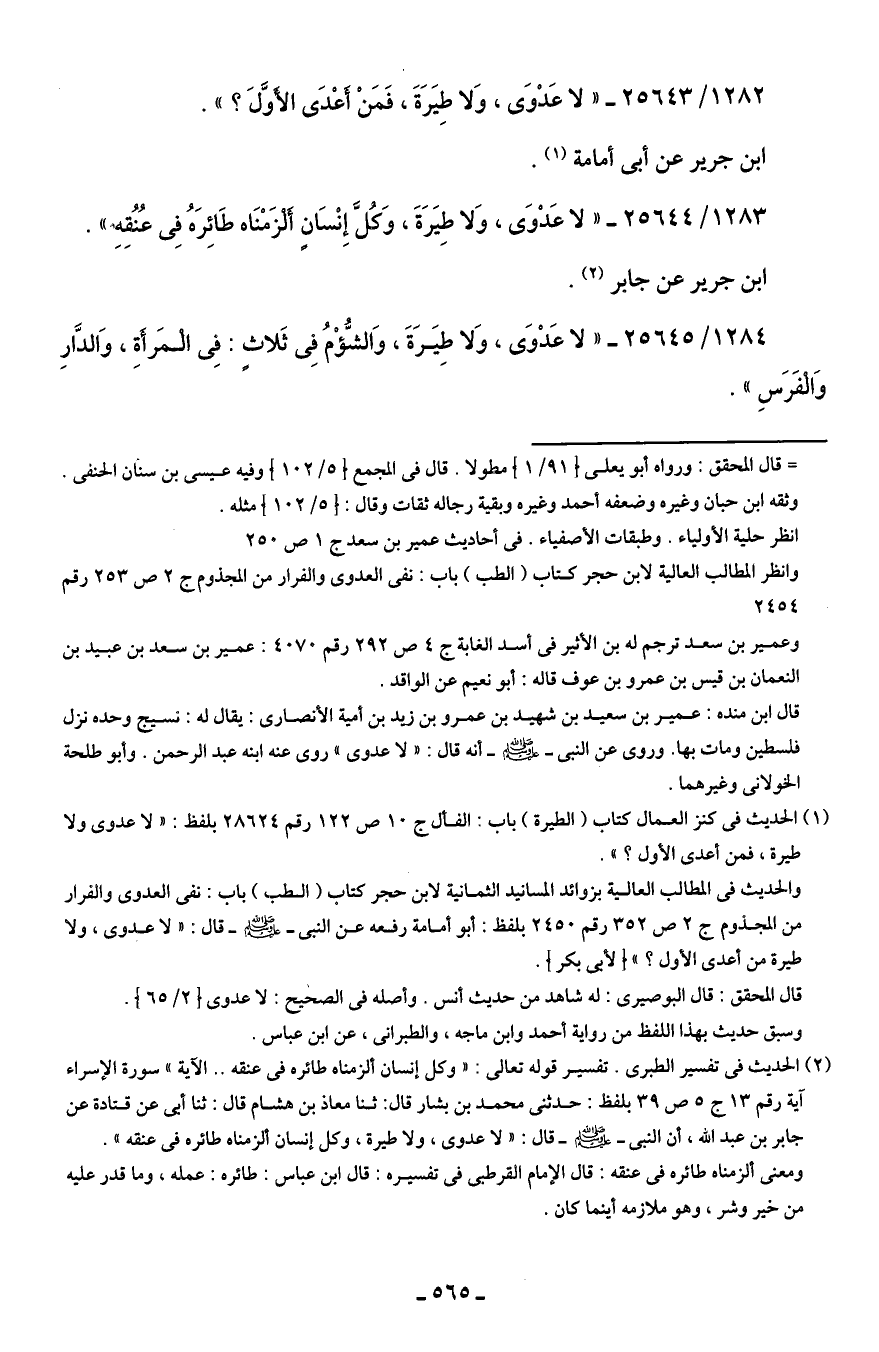 ١٢٨٢/ ٢٥٦٤٣ ـ « لا عَدْوَى ، وَلا طِيَرَةَ ، فَمَنْ أَعْدَى الأَوَّلَ ؟ » .
ابن جرير عن أبى أمامة (١) .
١٢٨٣/ ٢٥٦٤٤ ـ « لا عَدْوَى ، وَلا طِيَرَةَ ، وَكُلَّ إِنْسَانٍ أَلْزَمْنَاه طَائِرَهُ فِى عُنُقِهِ » .
ابن جرير عن جابر (٢) .
١٢٨٤/ ٢٥٦٤٥ ـ « لا عَدْوَى ، وَلا طِيَرَةَ ، وَالشُّؤْمُ فِى ثَلاثٍ : فِى الْمَرأَةِ ، وَالدَّارِ
وَالْفَرَسِ » .
= قال المحقق : ورواه أبو يعلى {٩١/ ١} مطولا . قال فى المجمع {٥/ ١٠٢} وفيه عيسى بن سنان الحنفى .
وثقه ابن حبان وغيره وضعفه أحمد وغيره وبقية رجاله ثقات وقال : {٥/ ١٠٢} مثله .
انظر حلية الأولياء . وطبقات الأصفياء . فى أحاديث عمير بن سعد ج ١ ص ٢٥٠
وانظر المطالب العالية لابن حجر كتاب ( الطب ) باب : نفى العدوى والفرار من المجذوم ج ٢ ص ٢٥٣ رقم
٢٤٥٤
وعمير بن سعد ترجم له بن الأثير فى أسد الغابة ج ٤ ص ٢٩٢ رقم ٤٠٧٠ : عمير بن سعد بن عبيد بن
النعمان بن قيس بن عمرو بن عوف قاله : أبو نعيم عن الواقد .
قال ابن منده : عمير بن سعيد بن شهيد بن عمرو بن زيد بن أمية الأنصارى : يقال له : نسيج وحده نزل
فلسطين ومات بها. وروى عن النبى ـ ﷺ ـ أنه قال : « لا عدوى » روى عنه ابنه عبد الرحمن . وأبو طلحة
الخولانى وغيرهما .
(١) الحديث فى كنز العمال كتاب ( الطيرة ) باب : الفأل ج ١٠ ص ١٢٢ رقم ٢٨٦٢٤ بلفظ : « لا عدوى ولا
طيرة ، فمن أعدى الأول ؟ » .
والحديث فى المطالب العالية بزوائد المسانيد الثمانية لابن حجر كتاب ( الطب ) باب : نفى العدوى والفرار
من المجذوم ج ٢ ص ٣٥٢ رقم ٢٤٥٠ بلفظ : أبو أمامة رفعه عن النبى ـ ﷺ ـ قال : « لا عدوى ، ولا
طيرة من أعدى الأول ؟ » {لأبى بكر} .
قال المحقق : قال البوصيرى : له شاهد من حديث أنس . وأصله فى الصحيح : لا عدوى {٢/ ٦٥} .
وسبق حديث بهذا اللفظ من رواية أحمد وابن ماجه ، والطبرانى ، عن ابن عباس .
(٢) الحديث فى تفسير الطبرى . تفسير قوله تعالى : « وكل إنسان ألزمناه طائره فى عنقه .. الآية » سورة الإسراء
آية رقم ١٣ ج ٥ ص ٣٩ بلفظ : حدثنى محمد بن بشار قال: ثنا معاذ بن هشام قال : ثنا أبى عن قتادة عن
جابر بن عبد الله ، أن النبى ـ ﷺ ـ قال : « لا عدوى ، ولا طيرة ، وكل إنسان ألزمناه طائره فى عنقه » .
ومعنى ألزمناه طائره فى عنقه : قال الإمام القرطبى فى تفسيره : قال ابن عباس : طائره : عمله ، وما قدر عليه
من خير وشر ، وهو ملازمه أينما كان .
ـ ٥٦٥ ـ